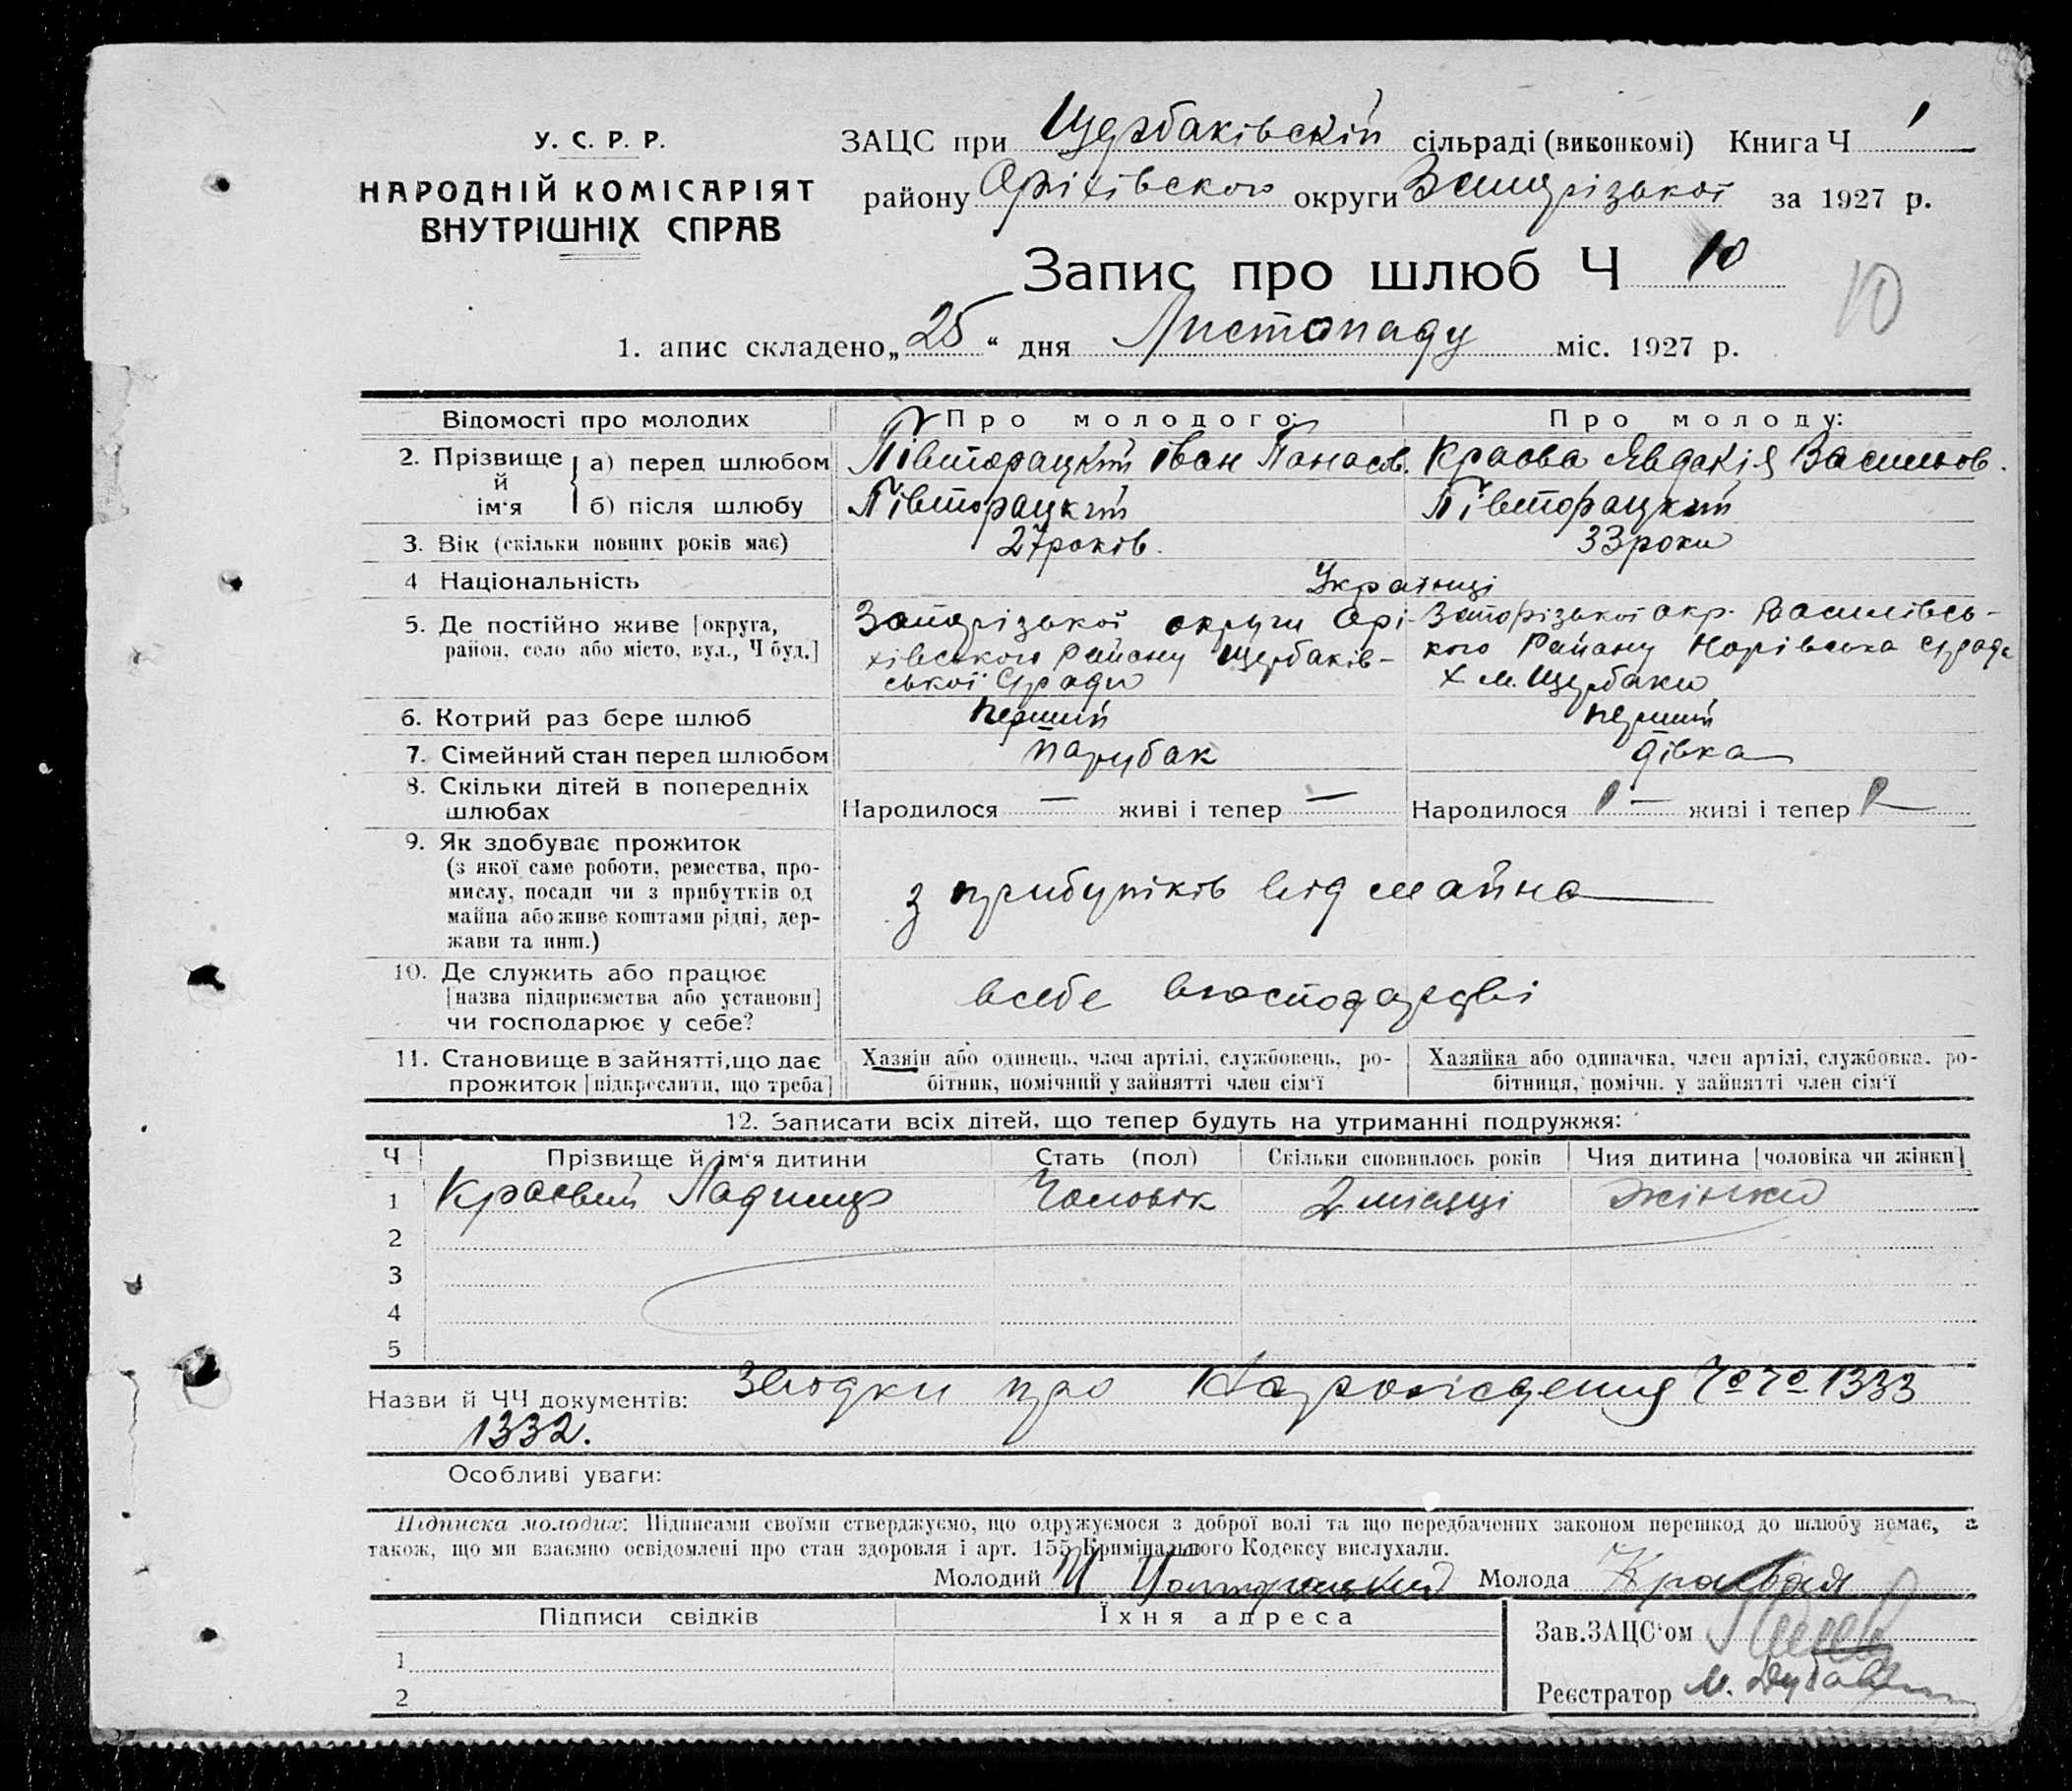 У. С. Р. Р.
НАРОДНІЙ КОМІСАРІЯТ
ВНУТРІШНІХ СПРАВ
ЗАЦС при Щербаківскій сільраді (виконкомі) Книга Ч 1
району Оріхівского округи Запорізької за 1927 р.
Запис про шлюб Ч 10
10
1. апис складено „25“ дня Листопаду міс. 1927 р.
Відомості про молодих Про молодого: Про молоду:
2. Прізвище й ім'я а) перед шлюбом Півторацкий Іван Панасов. Краєва Явдокія Васильов.
б) після шлюбу Півторацкий Півторацкий
3. Вік (скільки повних років має) 27 років. 33 роки
4 Національність Українці
5. Де постійно живе [округа, район, село або місто, вул., Ч буд.]
Запорізької округи Орі-
хівського Району Щербаків-
ської С/ради
Запорізької окр. Василівсь-
кого Району с/рада
х м. Щербаки
6. Котрий раз бере шлюб перший перший
7. Сімейний стан перед шлюбом парубак дівка
8. Скільки дітей в попередніх шлюбах
Народилося — живі і тепер — Народилося — живі і тепер —
9. Як здобуває прожиток
(з якої саме роботи, ремества, про-
мислу, посади чи з прибутків од
майна або живе коштами рідні, дер-
жави та инш.)
з прибутків від майна
10. Де служить або працює
[назва підприємства або установи]
чи господарює у себе?
всебе вгосподарстві
11. Становище в зайнятті, що дає
прожиток [підкреслити, що треба]
Хазяїн або одинець, член артілі, службовець, ро-
бітник, помічний у зайнятті член сім'ї
Хазяйка або одиначка, член артілі, службовка, ро-
бітниця, помічн. у зайнятті член сім'ї
12. Записати всіх дітей, що тепер будуть на утриманні подружжя:
Ч Прізвище й ім'я дитини Стать (пол) Скільки сповнилось років Чия дитина [чоловіка чи жінки]
1 Краєвий Чоловік 2 місяці жінки
2
3
4
5
Назви й ЧЧ документів: Звідки про Народження 1333
1332.
Особливі уваги:
Підписка молодих: Підписами своїми стверджуємо, що одружуємося з доброї волі та що передбачених законом перешкод до шлюбу немає, а
також, що ми взаємно освідомлені про стан здоровля і арт. 155 Кримінального Кодексу вислухали.
Молодий Молода
Підписи свідків Їхня адреса
Зав.ЗАЦС'ом
1
Реєстратор М.
2